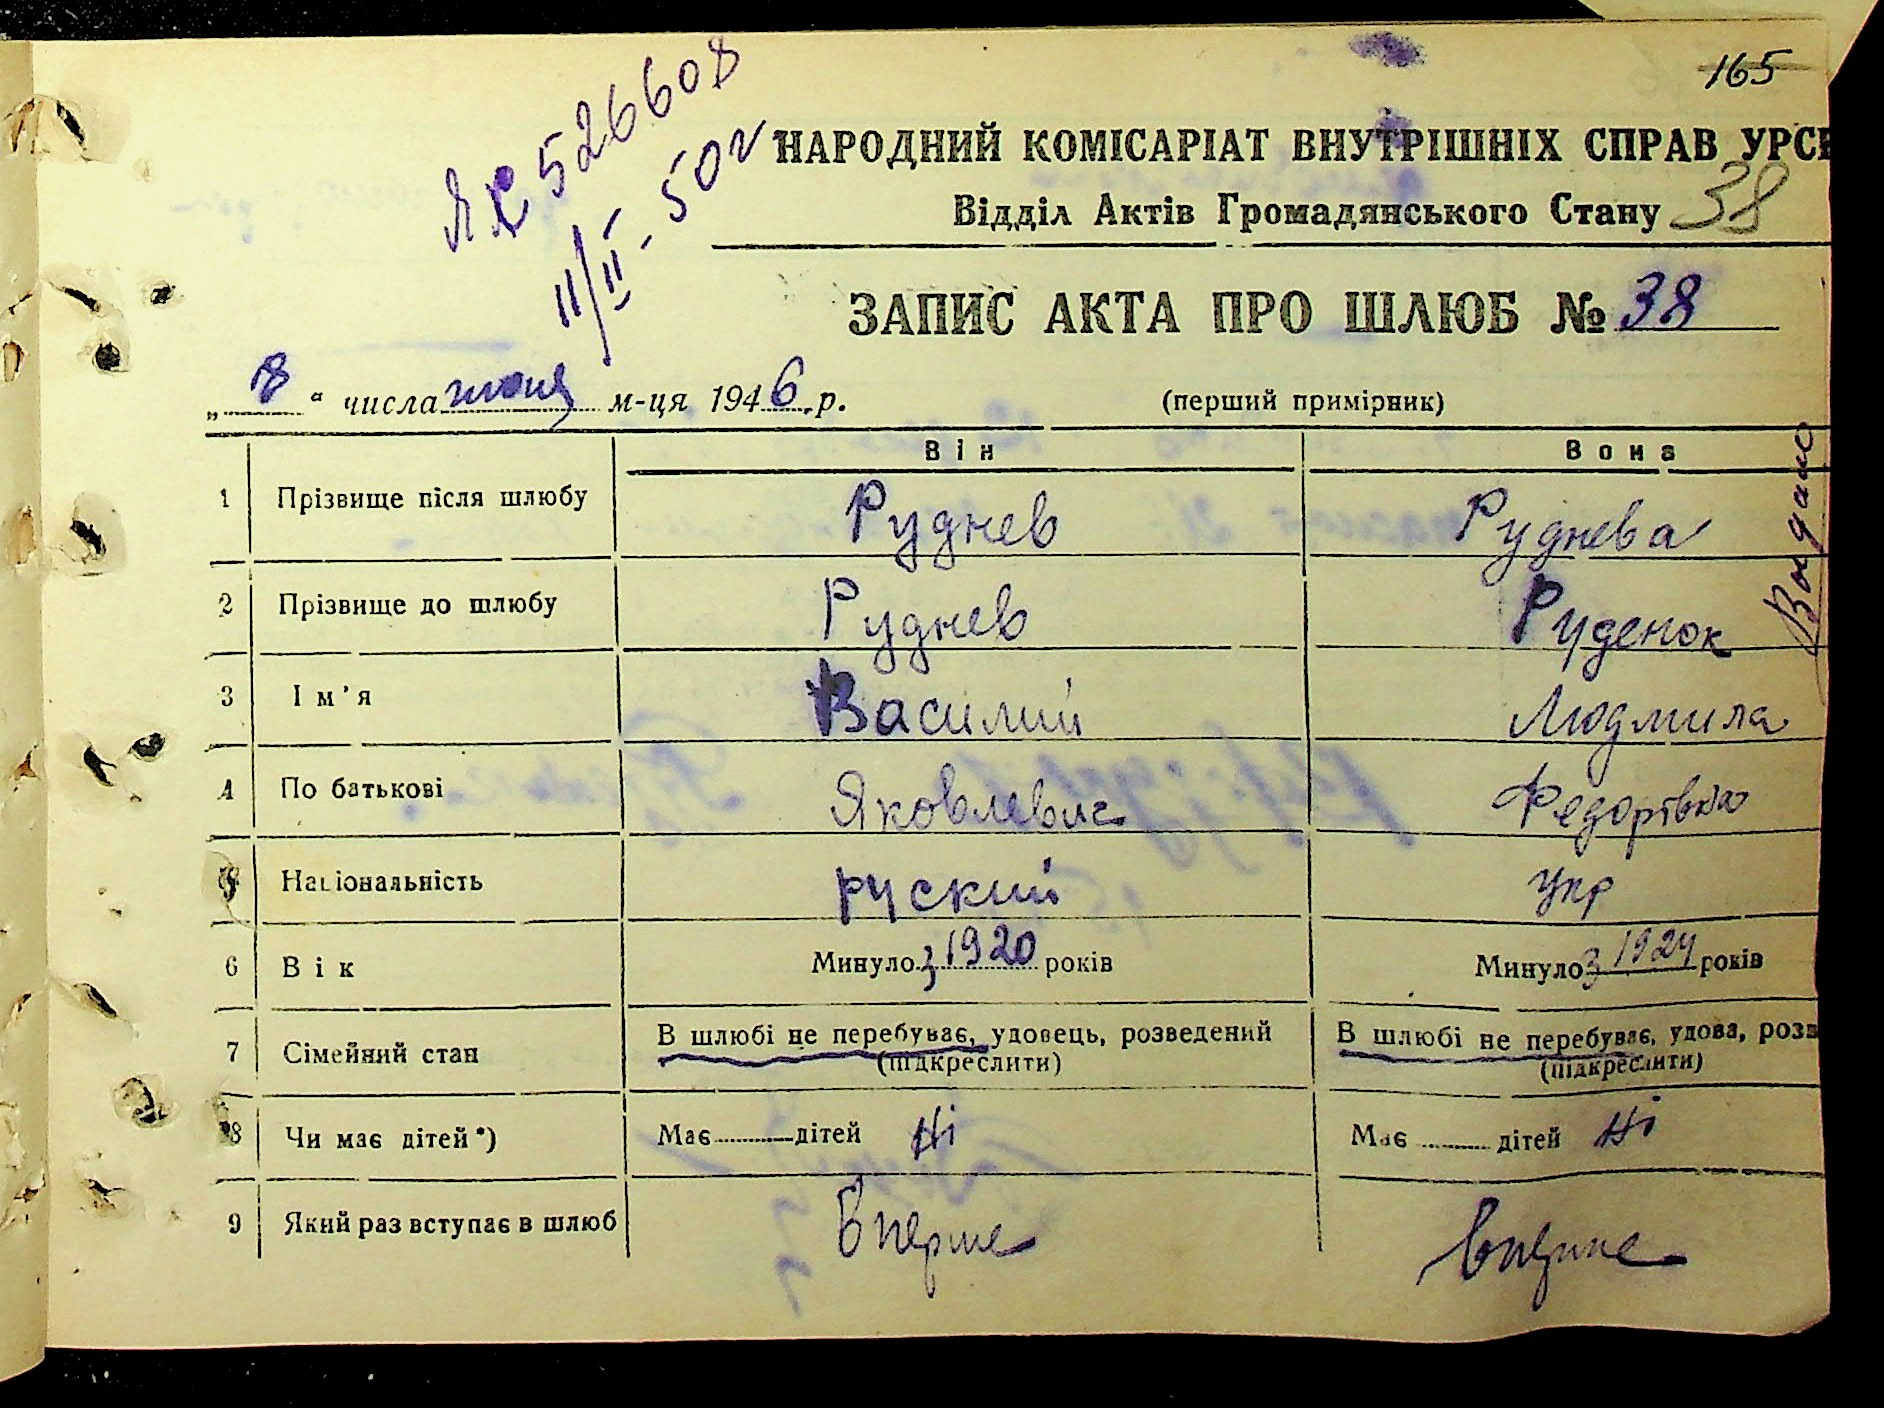 165
ЯС 526608
11/II - 50 г
НАРОДНИЙ КОМІСАРІАТ ВНУТРІШНІХ СПРАВ УРСР
Відділ Актів Громадянського Стану 38
ЗАПИС АКТА ПРО ШЛЮБ № 38
„ 8 “ числа июня м-ця 1946 р. (перший примірник)
Він Вона
1 Прізвище після шлюбу Руднев Руднева
Выдано
2 Прізвище до шлюбу Руднев Руденок
3 Ім’я Василий Людмила
4 По батькові Яковлевич Федорівна
5 Національність руский укр
6 Вік Минуло з 1920 років Минуло з 1924 років
7 Сімейний стан В шлюбі не перебуває, удовець, розведений В шлюбі не перебуває, удова, розв
(підкреслити) (підкреслити)
8 Чи має дітей*) Має дітей Ні Має дітей Ні
9 Який раз вступає в шлюб вперше вперше